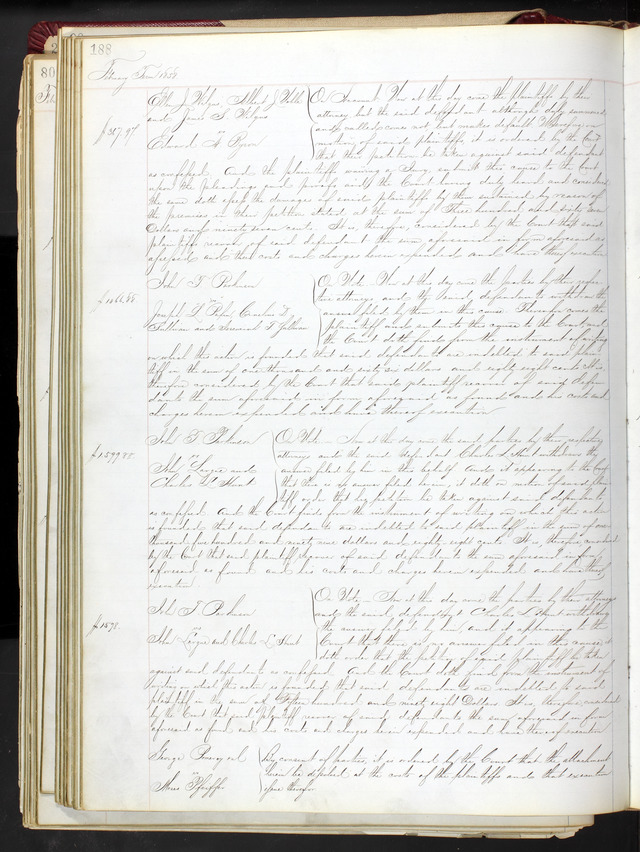 188
February Term 1858
John J. On Account. Now at this day come the plaintiffs by their
and James S. attorney but the said defendant although duly summoned
$367.97 and called comes not but makes default Whereupon on
Edward H. Byron motion of said plaintiffs it is ordered by the Court
that their petition be taken against said defendant
as confessed. And the plaintiffs waiving a Jury submit this cause to the Court
upon the pleadings and proofs and the Court having duly heard and considered
the same doth assess the damages of said plaintiffs by them sustained by reason of
the premises in their petition stated at the sum of Three hundred and sixty seven
Dollars and ninety seven cents. It is, therefore, considered by the Court that said
plaintiffs recover of said defendant the sum aforesaid in form aforesaid as
assessed and their costs and charges herein expended and have thereof execution
John T. On Note. Now at this day come the parties by their respec
tive attorneys and the said defendants withdraw the
$1066.88. Joseph answer filed by them in this cause. Thereupon comes the
and plaintiff and submits this cause to the Court and
the Court doth find from the instrument of writing
on which this action is founded that said defendants are indebted to said plain
tiff in the sum of one thousand and sixty six dollars and eighty eight cents. It is
therefore considered by the Court that said plaintiff recover of said defen
dants the sum aforesaid in form aforesaid as found and his costs and
charges herein expended and have thereof execution
John T. On Note. Now at this day come the said parties by their respective
attorneys and the said defendant Charles L. Hunt withdraws the
$1599.88. John and answer filed by him in this behalf And it appearing to the Court
Charles L. Hunt that there is no answer filed herein, it doth on motion of said plain
tiff order that his petition be taken against said defendants
as confessed And the Court finds from the instrument of writing on which this action
is founded that said defendants are indebted to said plaintiff in the sum of one
thousand five hundred and ninety nine dollars and eighty eight cents. It is, therefore considered
by the Court that said plaintiff recover of said defendants the sum aforesaid in form
aforesaid as found and his costs and charges herein expended and have thereof
execution
John T. On Note. Now at this day come the parties by their attorneys
and the said defendant Charles L. Hunt withdraws
$1578. the answer filed and it appearing to the
John and Charles L. Hunt Court that there is no answer filed in this cause it
doth order that the petition of said plaintiff be taken
against said defendants as confessed. And the Court doth find from the instrument of
writing on which this action is founded that said defendants are indebted to said
plaintiff in the sum of Fifteen hundred and seventy eight Dollars It is, therefore considered
by the Court that said plaintiff recover of said defendants the sum aforesaid in form
aforesaid as found and his costs and charges herein expended and have thereof execution
George By consent of parties, it is ordered by the Court that the attachment
herein be dissolved at the costs of the plaintiffs and that execution
Pfeiffer issue therefor